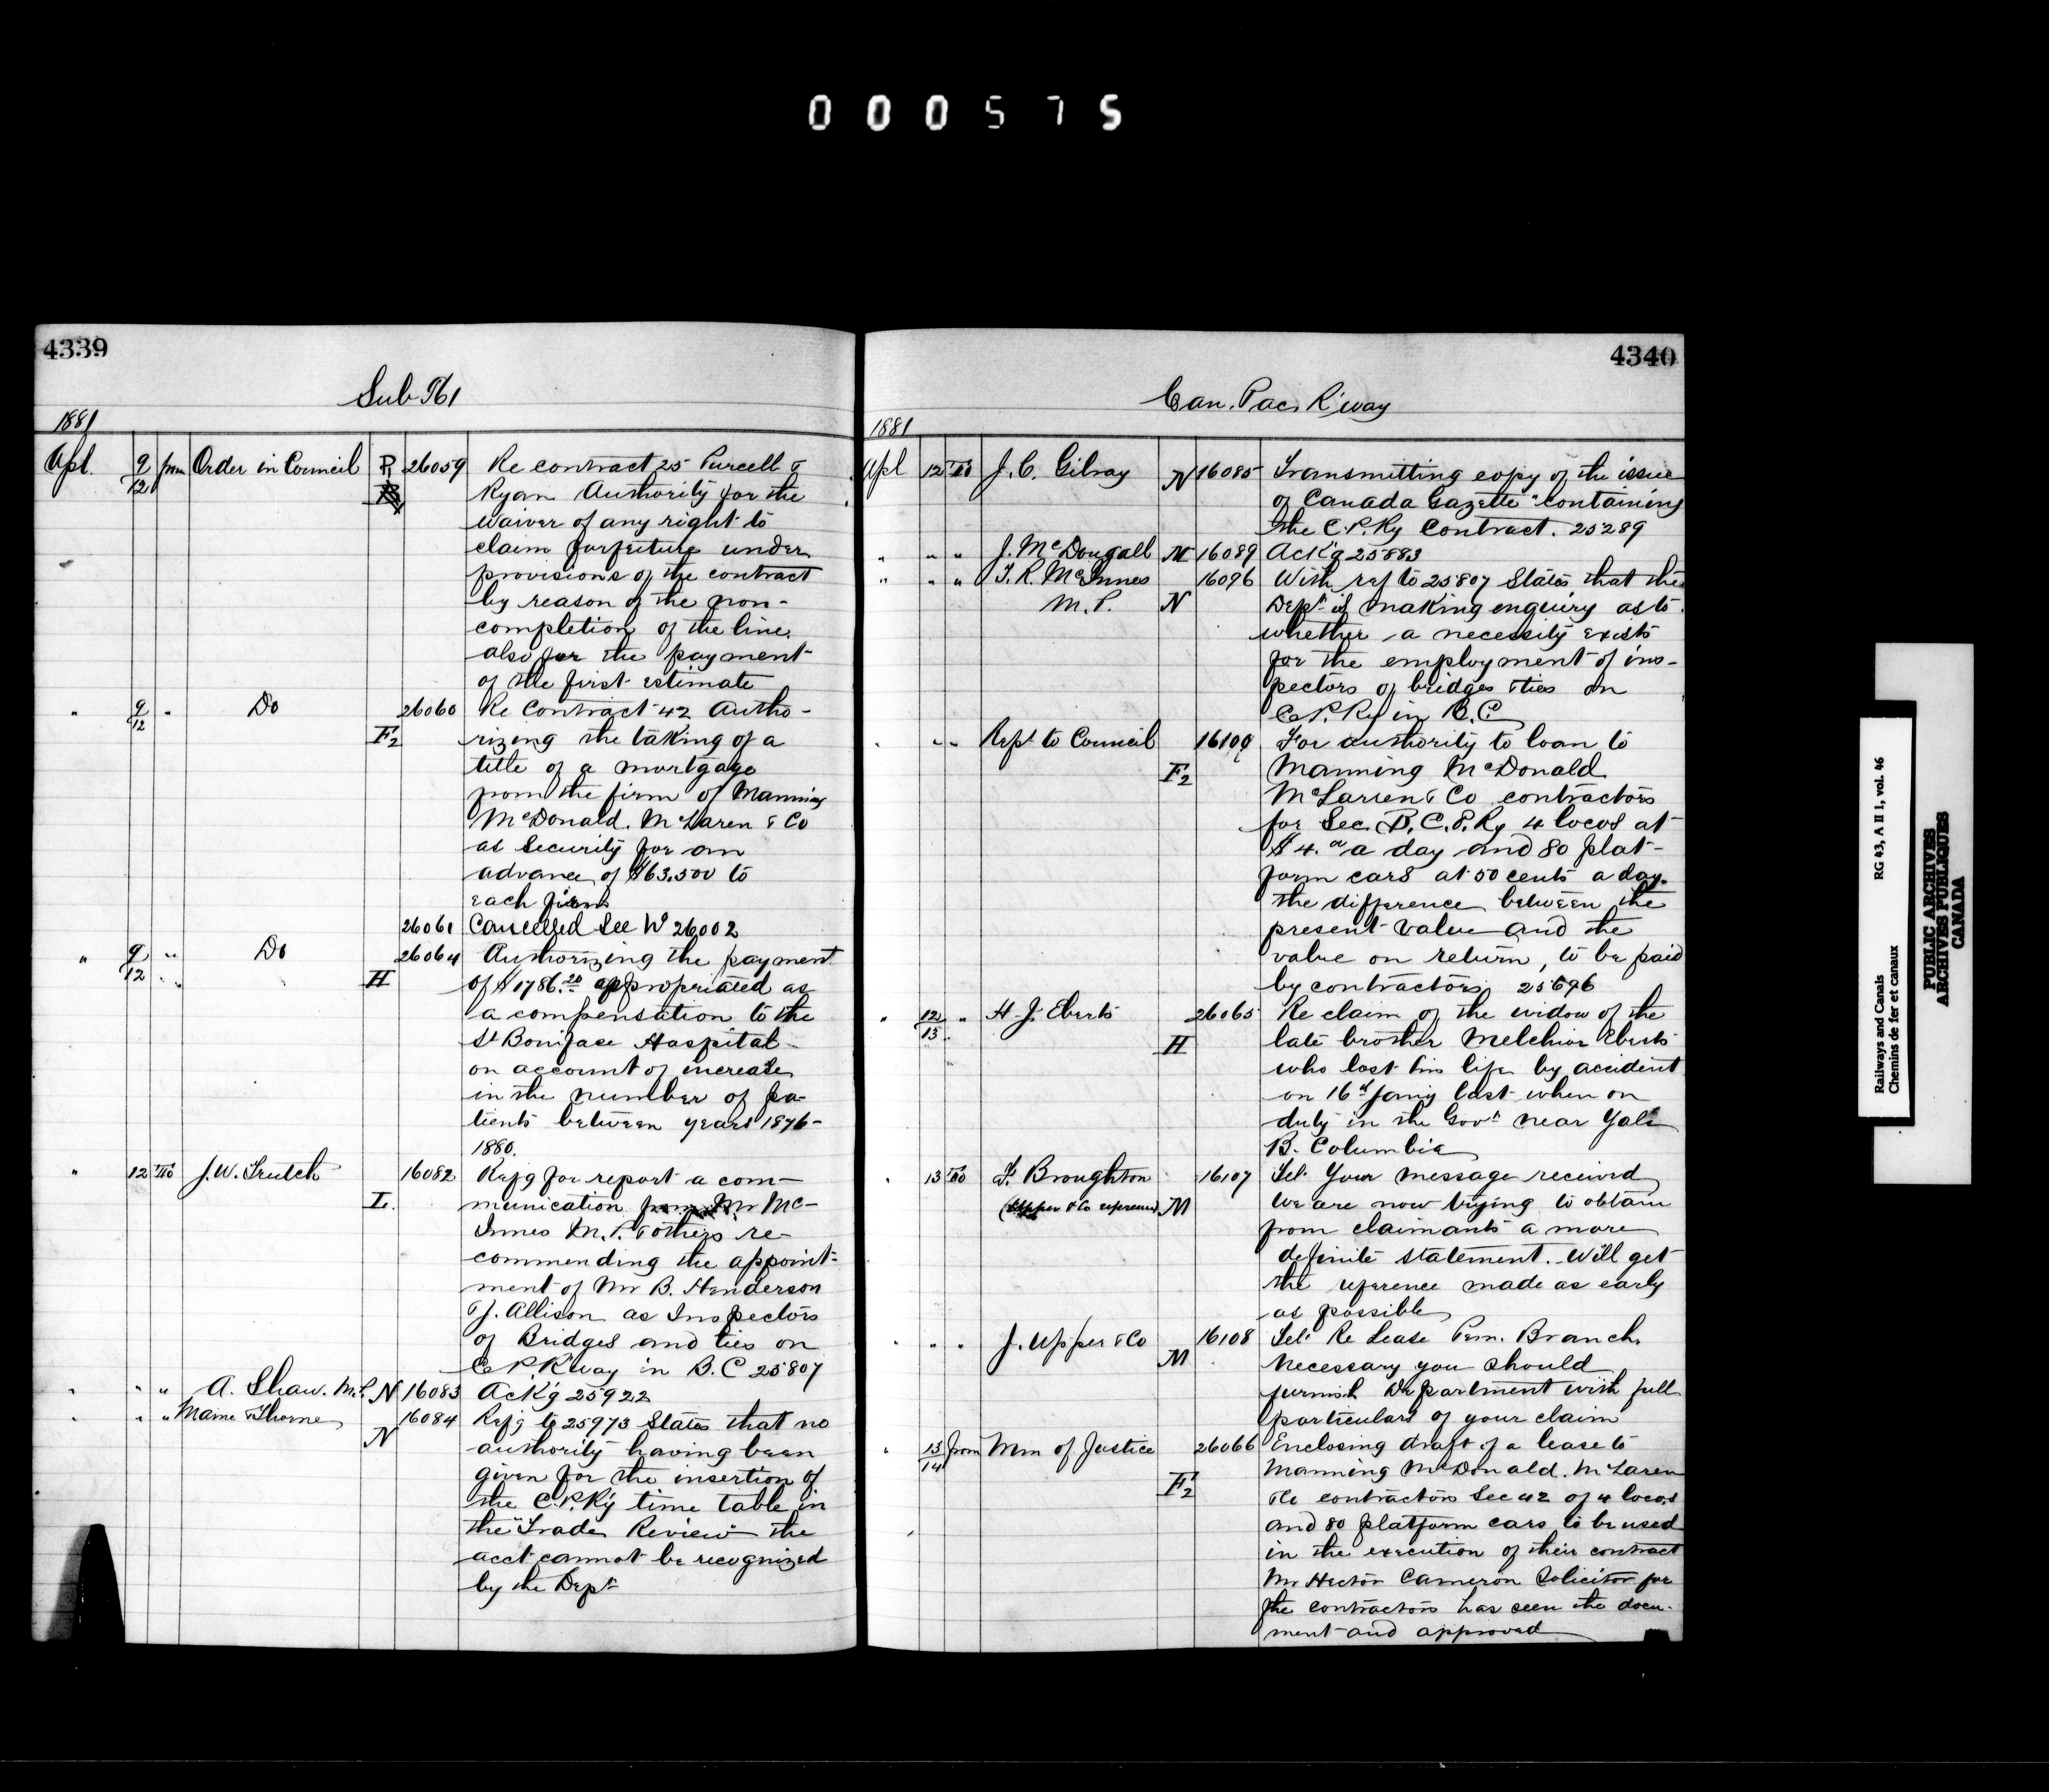 000575
4339
Sub 761
1881
Apl. 9/12 from Order in Council P. 26059 Re contract 25 Purcell &
Ryan Authority for the
waiver of any right to
claim forfeiture under
provisions of the contract
by reason of the non-
completion of the line.
also for the payment
of the first estimate
" 9/12 " Do F2 26060 Re Contract 42 Autho-
rizing the taking of a
title of a mortgage
from the firm of Manning
McDonald. McLaren & Co
as Security for an
advance of $63.500 to
each firm
26061 Cancelled See W 26002
" 9/12 " Do H 26064 Authorizing the payment
of $1786.20 appropriated as
a compensation to the
St Boniface Hospital
on account of increase
in the number of pa-
tients between years 1876-
1880.
" 12 To J.W. Trutch L. 16082 Refg for report a com-
munication from Mr Mc-
Innes M.P. & others re-
commending the appoint-
ment of Mr B. Henderson
& J. Allison as Inspectors
of Bridges and ties on
C.P.R'way in B.C 25807
" " " A. Shaw. M.P. N 16083 Ack'g 25922
" " " Marne & Thorne N 16084 Refg to 25973 States that no
authority having been
given for the insertion of
the C.P.Ry time table in
the "Trade Review" the
acct cannot be recognized
by the Dept
4340
Can. Pac. R'way
1881
Apl 12 To J. C. Gilray N 16085 Transmitting copy of the issue
of Canada Gazette "containing
the C.P.Ry Contract. 25289
" " " J. McDougall N 16089 Ack'g 25883
" " " T. R. McInnes 16096 With ref to 25807 States that the
M.P. N Dept is making enquiry as to
whether a necessity exists
for the employment of ins-
pectors of bridges & ties on
C.P.Ry in B.C.
" " " Rept to Council F2 16100 For authority to loan to
Manning McDonald
McLarren & Co contractors
for Sec. B. C.P.Ry 4 locos at
$4.00 a day and 80 plat-
form cars at 50 cents a day.
the difference between the
present value and the
value on return, to be paid
by contractors. 25696
" 12/13 " H. J. Eberts H 26065 Re claim of the widow of the
late brother Melchior Eberts
who lost his life by accident
on 16th Jany last when on
duty in the Govt near Yale
B. Columbia
" 13 To F. Broughton 16107 Tel. Your message received
(Upper & Co reference) M We are now trying to obtain
from claimants a more
definite statement. Will get
the reference made as early
as possible
" " " J. Upper & Co M 16108 Tel. Re Lease Pem. Branch.
Necessary you should
furnish Department with full
particulars of your claim
" 13/14 from Min of Justice F2 26066 Enclosing draft of a lease to
Manning McDonald. McLaren
& Co contractors Sec 42 of 4 locos
and 80 platform cars to be used
in the execution of their contract
Mr Hector Cameron Solicitor for
the contractors has seen the docu-
ment and approved
Railways and Canals
Chemins de fer et canaux
RG 43, A II 1, vol. 46
PUBLIC ARCHIVES
ARCHIVES PUBLIQUES
CANADA